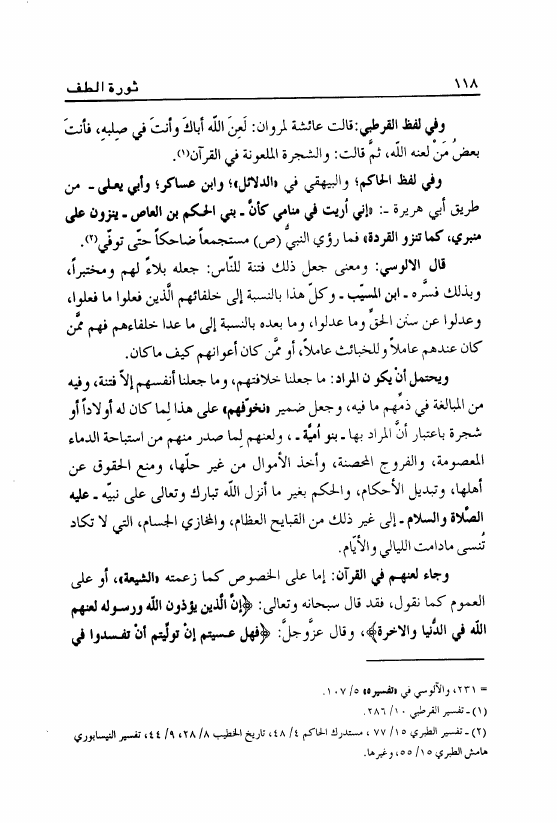 ١١٨ ثورة الطف
وفي لفظ القرطبي: قالت عائشة لمروان: لَعِنَ اللّه أباكَ وأنتَ في صِلبِهِ، فأنتَ
بعضُ مَنْ لعنه اللّه، ثمَّ قالت: والشجرة الملعونة في القرآن(١).
وفي لفظ الحاكم؛ والبيهقي في «الدلائل»؛ وابن عساكر؛ وأبي يعلى ـ من
طريق أبي هريرة ـ: «إني اُريت في منامي كأنَّ ـ بني الحكم بن العاص ـ ينزون على
منبري، كما تنزو القردة» فما رؤي النبيُّ (ص) مستجمعاً ضاحكاً حتّى توفّي(٢).
قال الالوسي: ومعنى جعل ذلك فتنة للنّاس: جعله بلاءً لهم ومختبراً،
وبذلك فسَّره ـ ابن المسيّب ـ وكلّ هذا بالنسبة إلى خلفائهم الَّذين فعلوا ما فعلوا،
وعدلوا عن سنن الحقِّ وما عدلوا، وما بعده بالنسبة إلى ما عدا خلفاءهم فهم ممَّن
كان عندهم عاملاً وللخبائث عاملاً، أو ممَّن كان أعوانهم كيف ماكان.
ويحتمل أنْ يكون المراد: ما جعلنا خلافتهم، وما جعلنا أنفسهم إلاّ فتنة، وفيه
من المبالغة في ذمِّهم ما فيه، وجعل ضمير «نخوّفهم» على هذا لما كان له أولاداً أو
شجرة باعتبار أنَّ المراد بها ـ بنو اُميَّة ـ، ولعنهم لما صدر منهم من استباحة الدماء
المعصومة، والفروج المحصنة، وأخذ الأموال من غير حلّها، ومنع الحقوق عن
أهلها، وتبديل الأحكام، والحكم بغير ما أنزل اللّه تبارك وتعالى على نبيّه ـ عليه
الصَّلاة والسلام ـ إلى غير ذلك من القبايح العظام، والمخازي الجسام، التي لا تكاد
تُنسى مادامت الليالي والأيّام.
وجاء لعنهم في القرآن: إما على الخصوص كما زعمته «الشيعة»، أو على
العموم كما نقول، فقد قال سبحانه وتعالى: ﴿إنَّ الَّذين يؤذون اللّه ورسوله لعنهم
اللّه في الدُّنيا والاخرة﴾، وقال عزَّوجلَّ: ﴿فهل عسيتم إنْ تولّيتم أنْ تفسدوا في
= ٢٣١، والآلوسي في «تفسيره» ٥/ ١٠٧.
(١) ـ تفسير القرطبي ١٠/ ٢٨٦.
(٢) ـ تفسير الطبري ١٥/ ٧٧ ، مستدرك الحاكم ٤/ ٤٨، تاريخ الخطيب ٨/ ٢٨، ٩/ ٤٤، تفسير النيسابوري
هامش الطبري ١٥/ ٥٥، وغيرها.